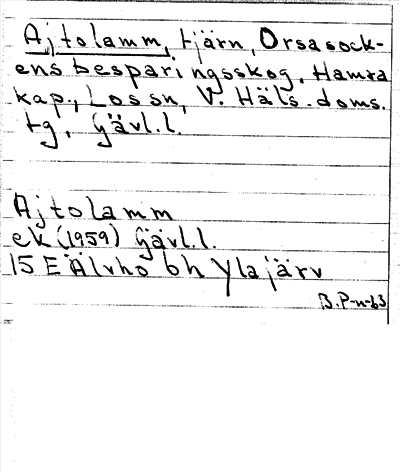 Ajtolamm, tjärn, Orsasock-
ens besparingsskog, Hamra
kap., Lossn, V. Häls. doms.
tg, Gävl.l.
Ajtolamm
ek (1959) Gävl.l.
15 E Älvho 6h Ylajärv
B. P-n-63